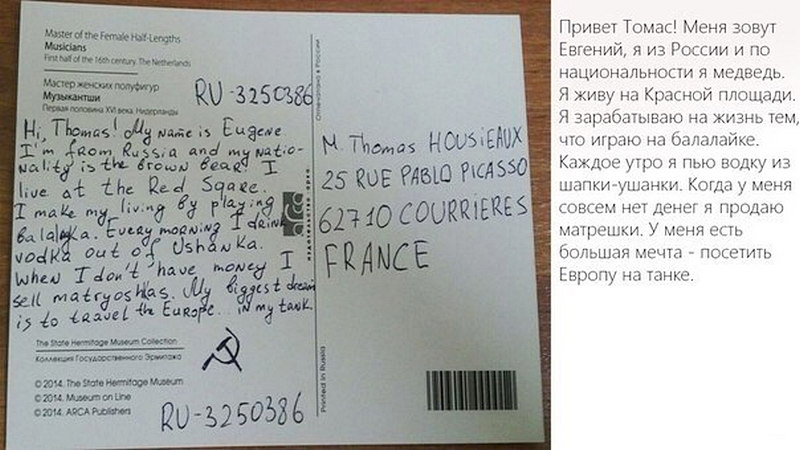 Master of the Female Half-Lengths
Musicians
First half of the 16th century. The Netherlands
Мастер женских полуфигур
Музыкантши
Первая половина XVI века. Нидерланды
RU-3250386
Hi, Thomas! My name is Eugene.
I'm from Russia and my natio-
nality is the brown bear. I
live at the Red Sqare.
I make my living by playing
balalayka. Every morning I drink
vodka out of Ushanka.
When I don't have money I
sell matryoshkas. My biggest dream
is to travel the Europe... in my tank.
The State Hermitage Museum Collection
Коллекция Государственного Эрмитажа
© 2014. The State Hermitage Museum
© 2014. Museum on Line
© 2014. ARCA Publishers
RU-3250386
Отпечатано в России
издательство арка
Printed in Russia
M. Thomas HOUSIEAUX
25 RUE PABLO PICASSO
62710 COURRIERES
FRANCE
Привет Томас! Меня зовут
Евгений, я из России и по
национальности я медведь.
Я живу на Красной площади.
Я зарабатываю на жизнь тем,
что играю на балалайке.
Каждое утро я пью водку из
шапки-ушанки. Когда у меня
совсем нет денег я продаю
матрешки. У меня есть
большая мечта - посетить
Европу на танке.